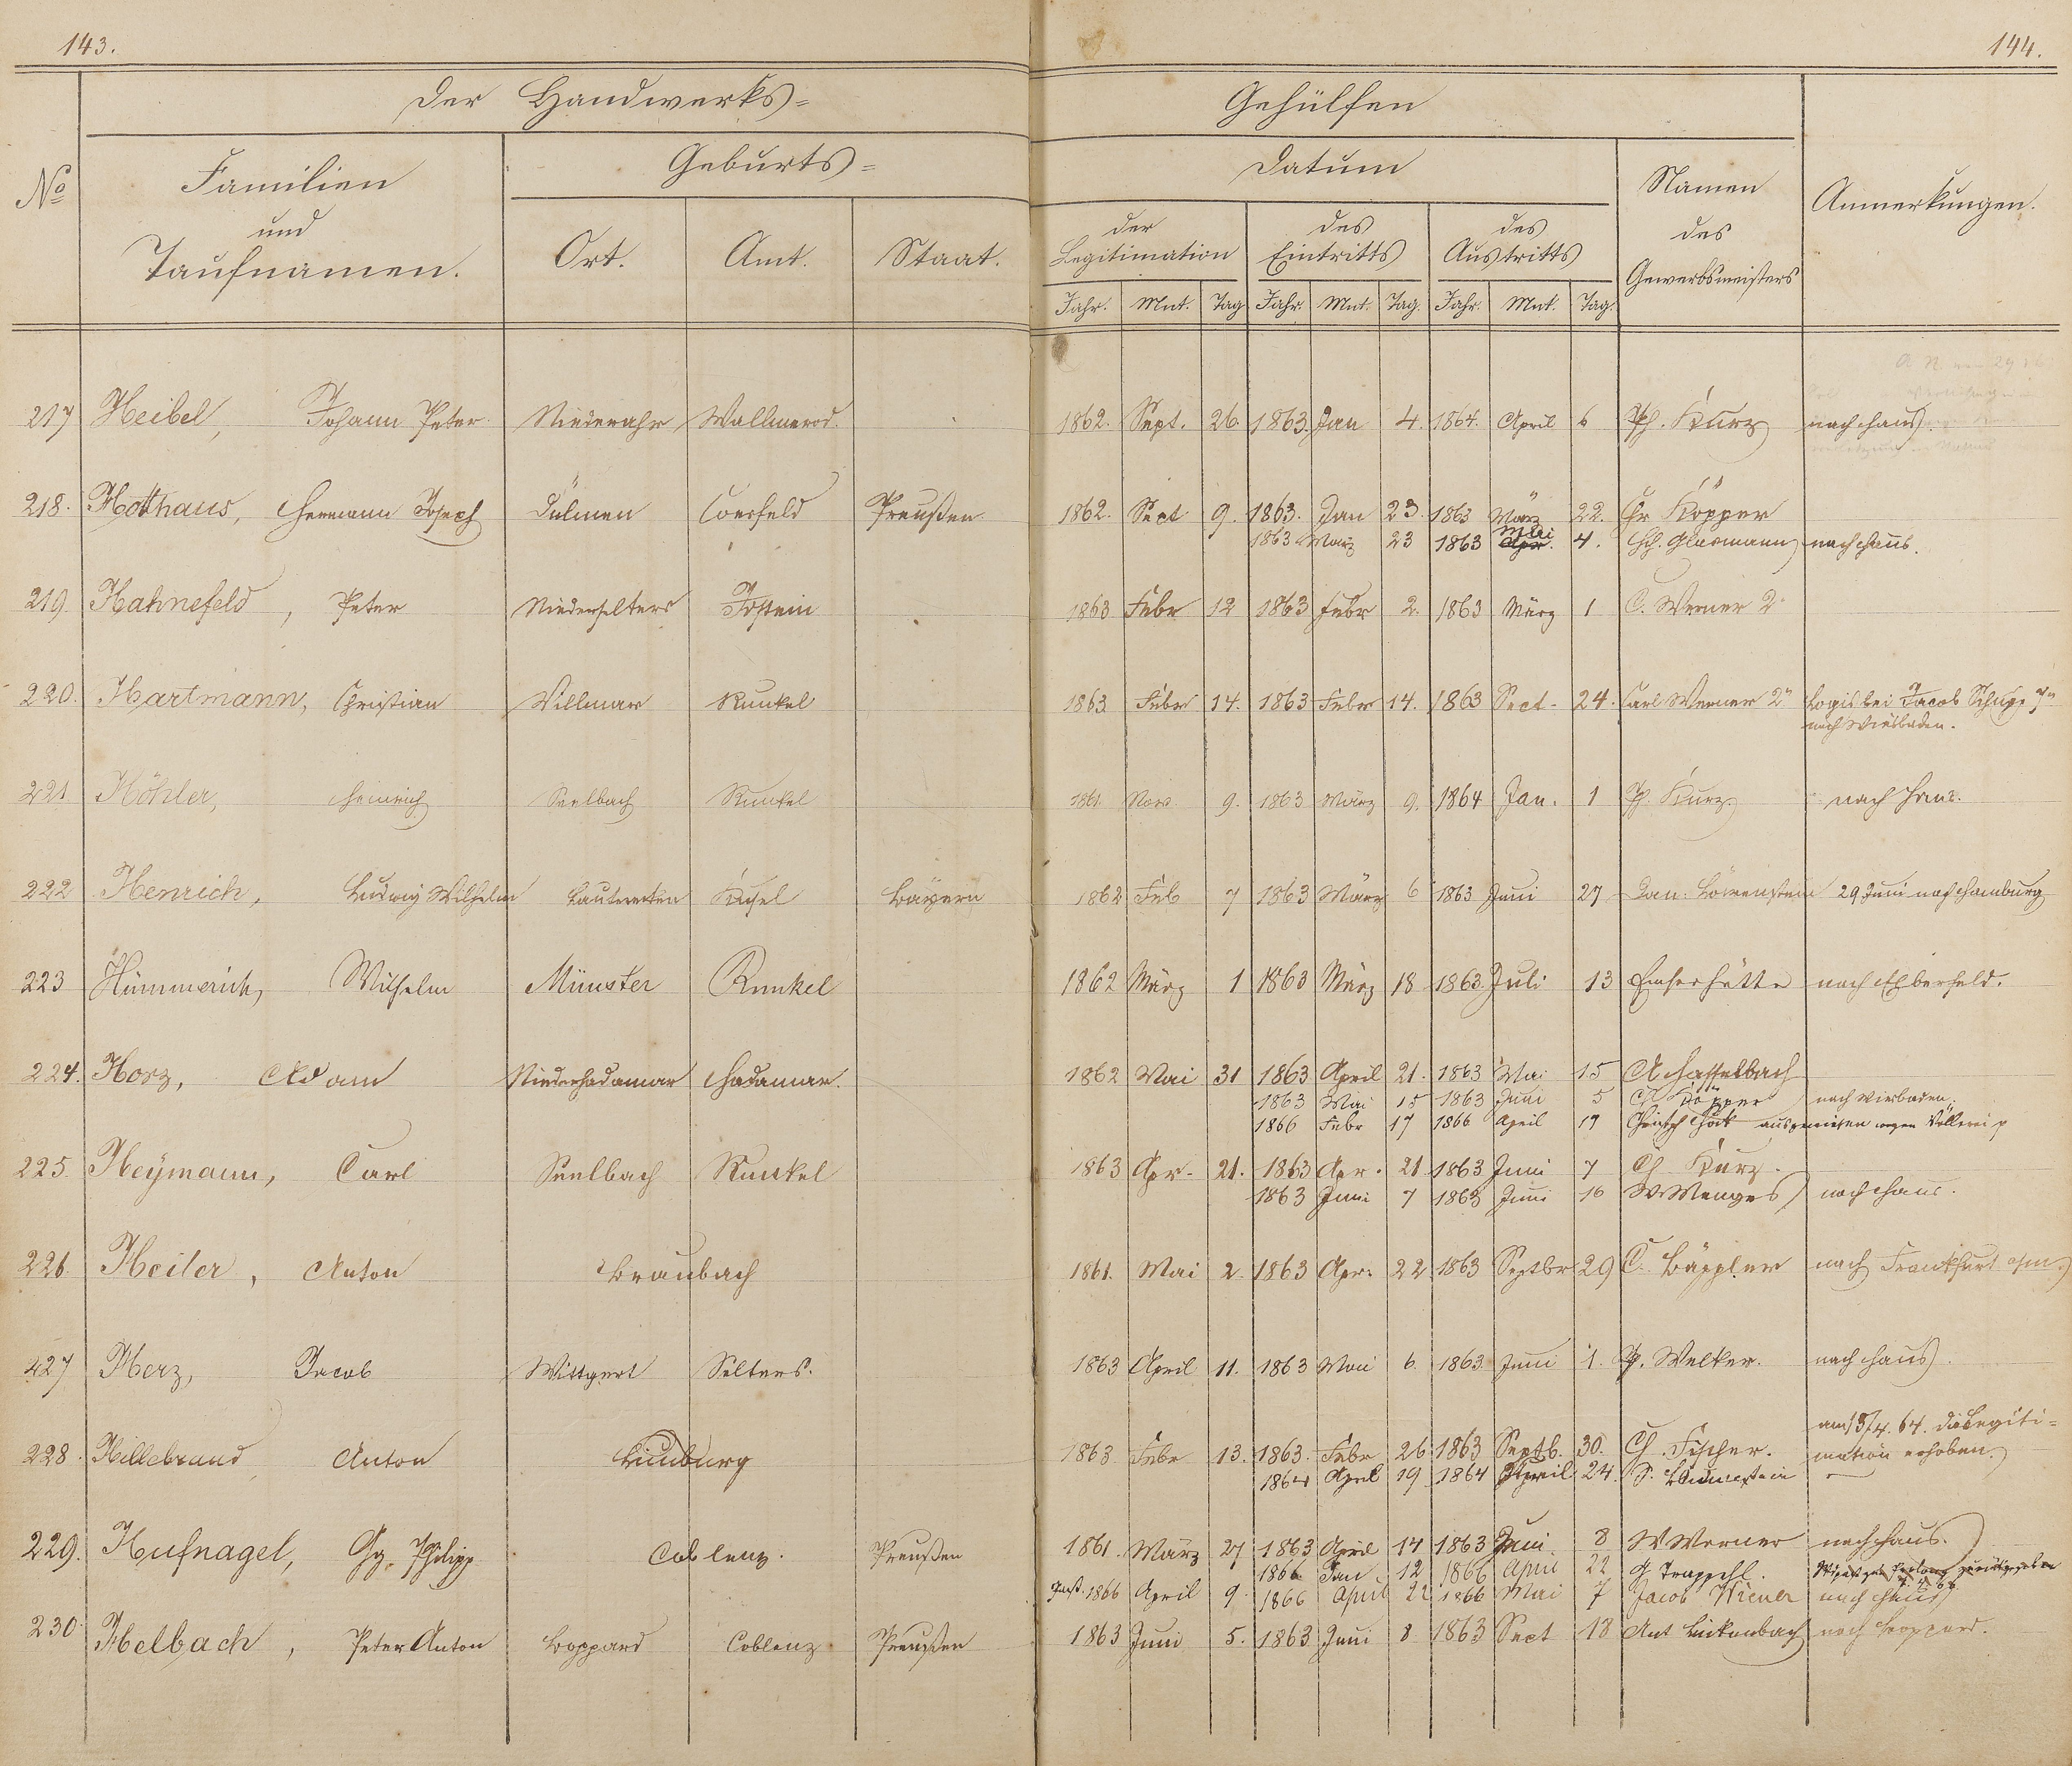 143.
144.
Der Handwerks=
Gehülfen
No
Familien
und
Taufnamen.
Geburts=
Ort.
Amt.
Staat.
Datum
der
Legitimation
des
Eintritts
des
Austritts
Jahr. Mnt. Tag Jahr. Mnt. Tag. Jahr. Mnt. Tag.
Namen
des
Gewerbsmeisters
Anmerkungen.
217 Heibel, Johann Peter Niederahr Wallmerod. 1862. Sept. 26. 1863. Jan 4. 1864. April 6 Ph. Kurz nach Haus.
218. Hotthaus, Hermann Joseph Dülmen Coesfeld Preußen 1862. Sept 9. 1863. Jan 23. 1863 März 22. Chr Köpper
1863 März 23 1863 Apr. Mai 4. Glasmann nach Haus.
219. Hahnefeld, Peter Niederselters Idstein 1863 Febr 12 1863 Febr 2. 1863 März 1 C. Werner 2.
220. Hartmann, Christian Villmar Runkel 1863 Febr 14. 1863 Febr 14. 1863 Sept. 24. Carl Werner 2n Logis bei Jacob Schupp 7n
nach Wiesbaden.
221 Höhler, Heinrich Seelbach Runkel 1861. Nov. 9. 1863 März 9. 1864 Jan. 1 Ph. Kurz. nach Haus.
222 Henrich, Ludwig Wilhelm Lauterecken Kusel Bayern 1862 Feb 7 1863 März 6 1863 Juni 27 Dan: Löwenstein 29 Juni nach Hamburg
223 Hümmerich, Wilhelm Münster Runkel 1862 März 1 1863 März 18 1863. Juli 13 Emserhütte nach Elberfeld.
224. Horz, Adam Niederhadamar Hadamar. 1862 Mai 31 1863 April 21. 1863 Mai 15 A Hasselbach
1863 Mai 15 1863 Juni 5 Ch Köpper nach Wiesbaden.
1866 Febr 17 1866 April 19 ausgewiesen wegen Völlerei p
225. Heÿmann, Carl Seelbach Runkel 1863 Apr. 21. 1863 Apr. 21 1863 Juni 7 Ph Kurz.
1863 Juni 7 1863 Juni 16 W Menges nach Haus.
226. Heiler, Anton Braubach 1861. Mai 2. 1863 Apr. 22 1863 Septbr 29 C. Bäppler nach Frankfurt a/m.
427 Herz, Jacob Wittgert Selters. 1863 April 11. 1863 Mai 6. 1863 Juni 1. Ph. Welker. nach Haus.
228. Hillebrand Anton Limburg 1863 Febr 13. 1863. Febr 26 1863 Septb. 30. Ch Fischer. am 15/4. 64. die Legiti=
mation erhoben.
1864 April 19 1864 April 24. Löwenstein
229. Hufnagel, Gg. Philipp Coblenz. Preußen 1861. März 27 1863 April 14 1863 Juni 8 W Werner nach Haus.
1866 Jan. 12 1866 April 22 G Trappehl.
1866 April 9. 1866 April 22 1866 Mai 7 Jacob Wiener nach Haus
230. Helbach, Peter Anton Boppard Coblenz Preußen 1863 Juni 5. 1863 Juni 8 1863 Sept 18 Ant Linkenbach nach Boppard.